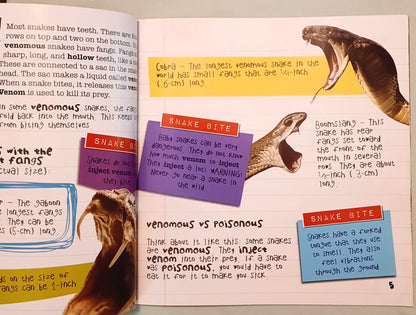 Most snakes have teeth. There are
rows on top and two on the bottom.
venomous snakes have fangs. Fangs
sharp, long, and hollow teeth, like a
These are connected to a sac in the sna
head. The sac makes a liquid called ve
When a snake bites, it releases this ve
Venom is used to kill its prey.
In some venomous snakes, the fa
fold back into the mouth. This keeps
from biting themselves.
s with the
t fangs
ctual size):
r – The gaboon
e longest fangs
They can be
es (5-cm) long.
ds on the size of
Fangs can be 1-inch
SNAKE BITE
Snakes do no
inject venom
they bite
Cobra – The longest venomous snake in the
world has small fangs that are ¼-inch
(.6-cm) long.
SNAKE BITE
Baby snakes can be very
dangerous. They do not know
how much venom to inject.
They inject a lot! WARNING!
Never go near a snake in
the wild.
Boomslang – This
snake has rear
fangs set toward
the front of the
mouth in several
rows. They are about
¼-inch (
long.
venomous vs poisonous
Think about it like this: some snakes
are venomous. They inject
venom into their prey. If a snake
was poisonous, you would have to
eat it for it to make you sick.
SNAKE BITE
Snakes have a forked
tongue that they use
to smell. They also
feel vibrations
through the ground.
5